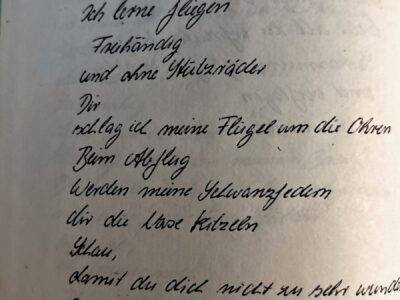 Ich lerne fliegen
Freihändig
und ohne Stützräder
Dir
schlag ich meine Flügel um die Ohren
Beim Abflug
Werden meine Schwanzfedern
dir die Nase kitzeln
Schau,
damit du dich nicht zu sehr